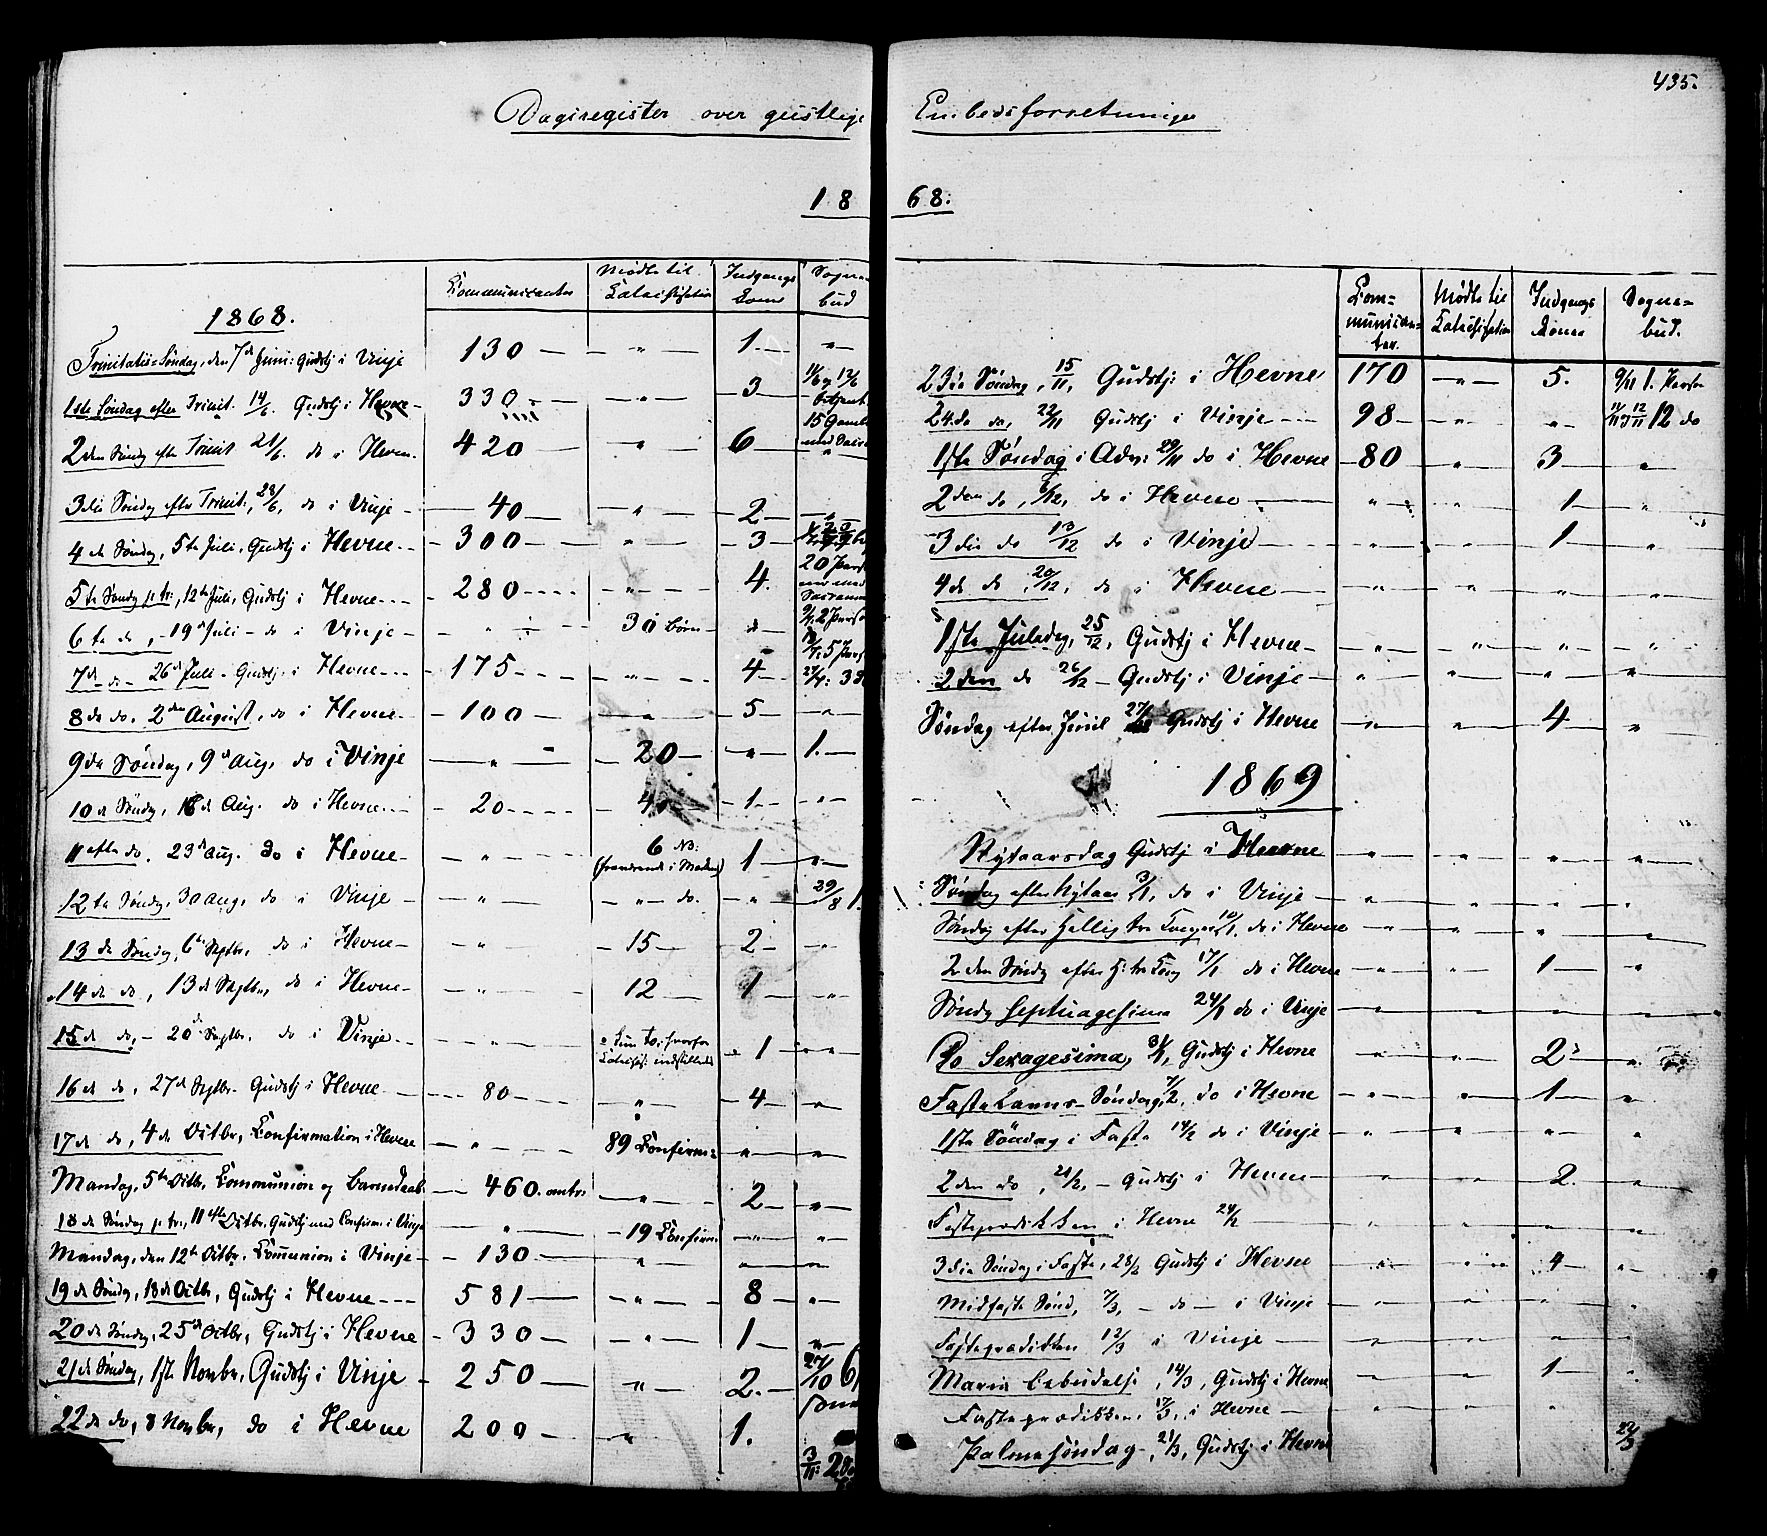 435.
Dagsregister over geistlige Embedsforretninger
18 68.
Communicanter Mødte til Catechisation Indgangs Koner Sogne- bud
1868.
Trinitatis Søndag, den 7de Juni: Gudstj i Vinje 130 — „ — 1 — „
1ste Søndag efter Trinit. 14/6. Gudstj i Hevne 330 — „ — 3 11/6 og 12/6
2den Søndg efter Trinit 21/6. do i Hevn. 420 „ 6 „
3die Søndg efter Trinit., 28/6, do i Vinje — 40 — „ — 2 — „
4de Søndg, 5te Juli, Gudstj i Hevne — 300 — „ — 3 —
5te Søndg p. tr:, 12te Juli, Gudstj i Hevne — 280 — „ — 4. 20 Pers
6te do, — 19de Juli — do i Vinje — „ — 30 Børn — „ —
7de do — 26de Juli — Gudstj. i Hevne — 175 — „ — 4 —
8de do. 2den August, do i Hevne — 100 — „ — 5 — „
9de Søndag, 9de Aug, do i Vinje — „ — 20 — „ — 1. —
10de Søndg, 16de Aug. do i Hevne — 20 — 40 — 1 — „
11 efter do. 23de Aug. do i Hevne — „ — 6 NB: 1 — „
12te Søndg, 30 Aug, do i Vinje — „ — „ do. — „ — 29/8 1.
13de Søndg, 6te Septbr, do i Hevne — „ — 15 — 2 — „
14de do, 13de Septbr, do i Hevne — „ — 12 — 1 — „
15de do, — 20de Septbr. do i Vinje — „ — Kun to, hvorfor Catechis: indstilledes — 1 — „
16de do, 27de Septbr. Gudstj i Hevne — 80 — „ — 4 — „
17de do, 4de Octbr, Confirmation i Hevne — „ — 89 Confirm: „ „
Mandag, 5te Octbr, Communion og Barnedaab — 460. omtr. „ 2 — „
18de Søndag p. tr., 11efte Octbr. Gudstj med Confirm: i Vinje „ — 19 Confirm „ „
Mandag, den 12te Octbr. Communion i Vinje — 130 — „ „ „
19de Søndg, 18de Octbr, Gudstj i Hevne — 581 — „ — 8 — „
20de Søndag, 25de Octbr, Gudstj i Hevne — 330 — „ — 1 — „
21de Søndag, 1ste Novbr, Gudstj i Vinje — 250 — „ — 2. — 27/10 6
22de do, 8 Novbr, do i Hevne 200 — „ 1.
3/11: 2
Communican- ter. Mødte til Catechisation Indgangs Koner Sogne- bud.
23de Søndag, 15/11, Gudstj: i Hevne 170 — „ — 5. 9/11 1. Person
24de do, 22/11 Gudstj i Vinje — 98 — „ „ 11/11 og 12/11 12 do
1ste Søndag i Adv: 29/11 do i Hevne — 80 „ 3 „
2den do, 6/12, do i Hevne — „ „ 1 „
3die do 13/12 do i Vinje — „ „ 1 „
4de do, 20/12, do i Hevne — „ „ „ „
1ste Juledag, 25/12, Gudstj i Hevne — „ „ „ „
2den do 26/12 — Gudstj i Vinje — „ „ „ „
Søndag efter Juul 27/12 Gudstj i Hevne „ „ 4 „
1869
Nytaarsdag Gudstj i Hevne „ „ „ „
Søndag efter Nytaar 3/1, do i Vinje — „ „ „ „
Søndg efter Hellig tre Konger 10/1. do i Hevne „ „ „
2den Søndg efter H: tre Kong 17/1 do i Hevne „ „ 1 „
Søndg Septuagesima 24/1 do i Vinje „ „ „ „
Do Sexagesima, 31/1, Gudstj i Hevne „ „ 2 „
Fastelavns-Søndag, 7/2, do i Hevne „ „ 1 „
1ste Søndag i Faste 14/2 do i Vinje „ „ „ „
2den do, 21/2, — Gudstj i Hevne — „ „ 2. „
Fasteprædikken i Hevne 24/2 — „ „ „ „
3die Søndag i Faste, 28/2 Gudstj i Hevne „ „ 4 „
Midfaste Sønd, 7/3, — do — i Vinje „ „ „ „
Fasteprædikken 12/3 i Vinje — „ „ „ „
Maria bebudelse, 14/3, Gudstj i Hevne „ „ 1 „
Fasteprædikken, 17/3, i Hevne — „ „ „
Palmesøndag — 21/3, Gudstj i Hevne 22/3